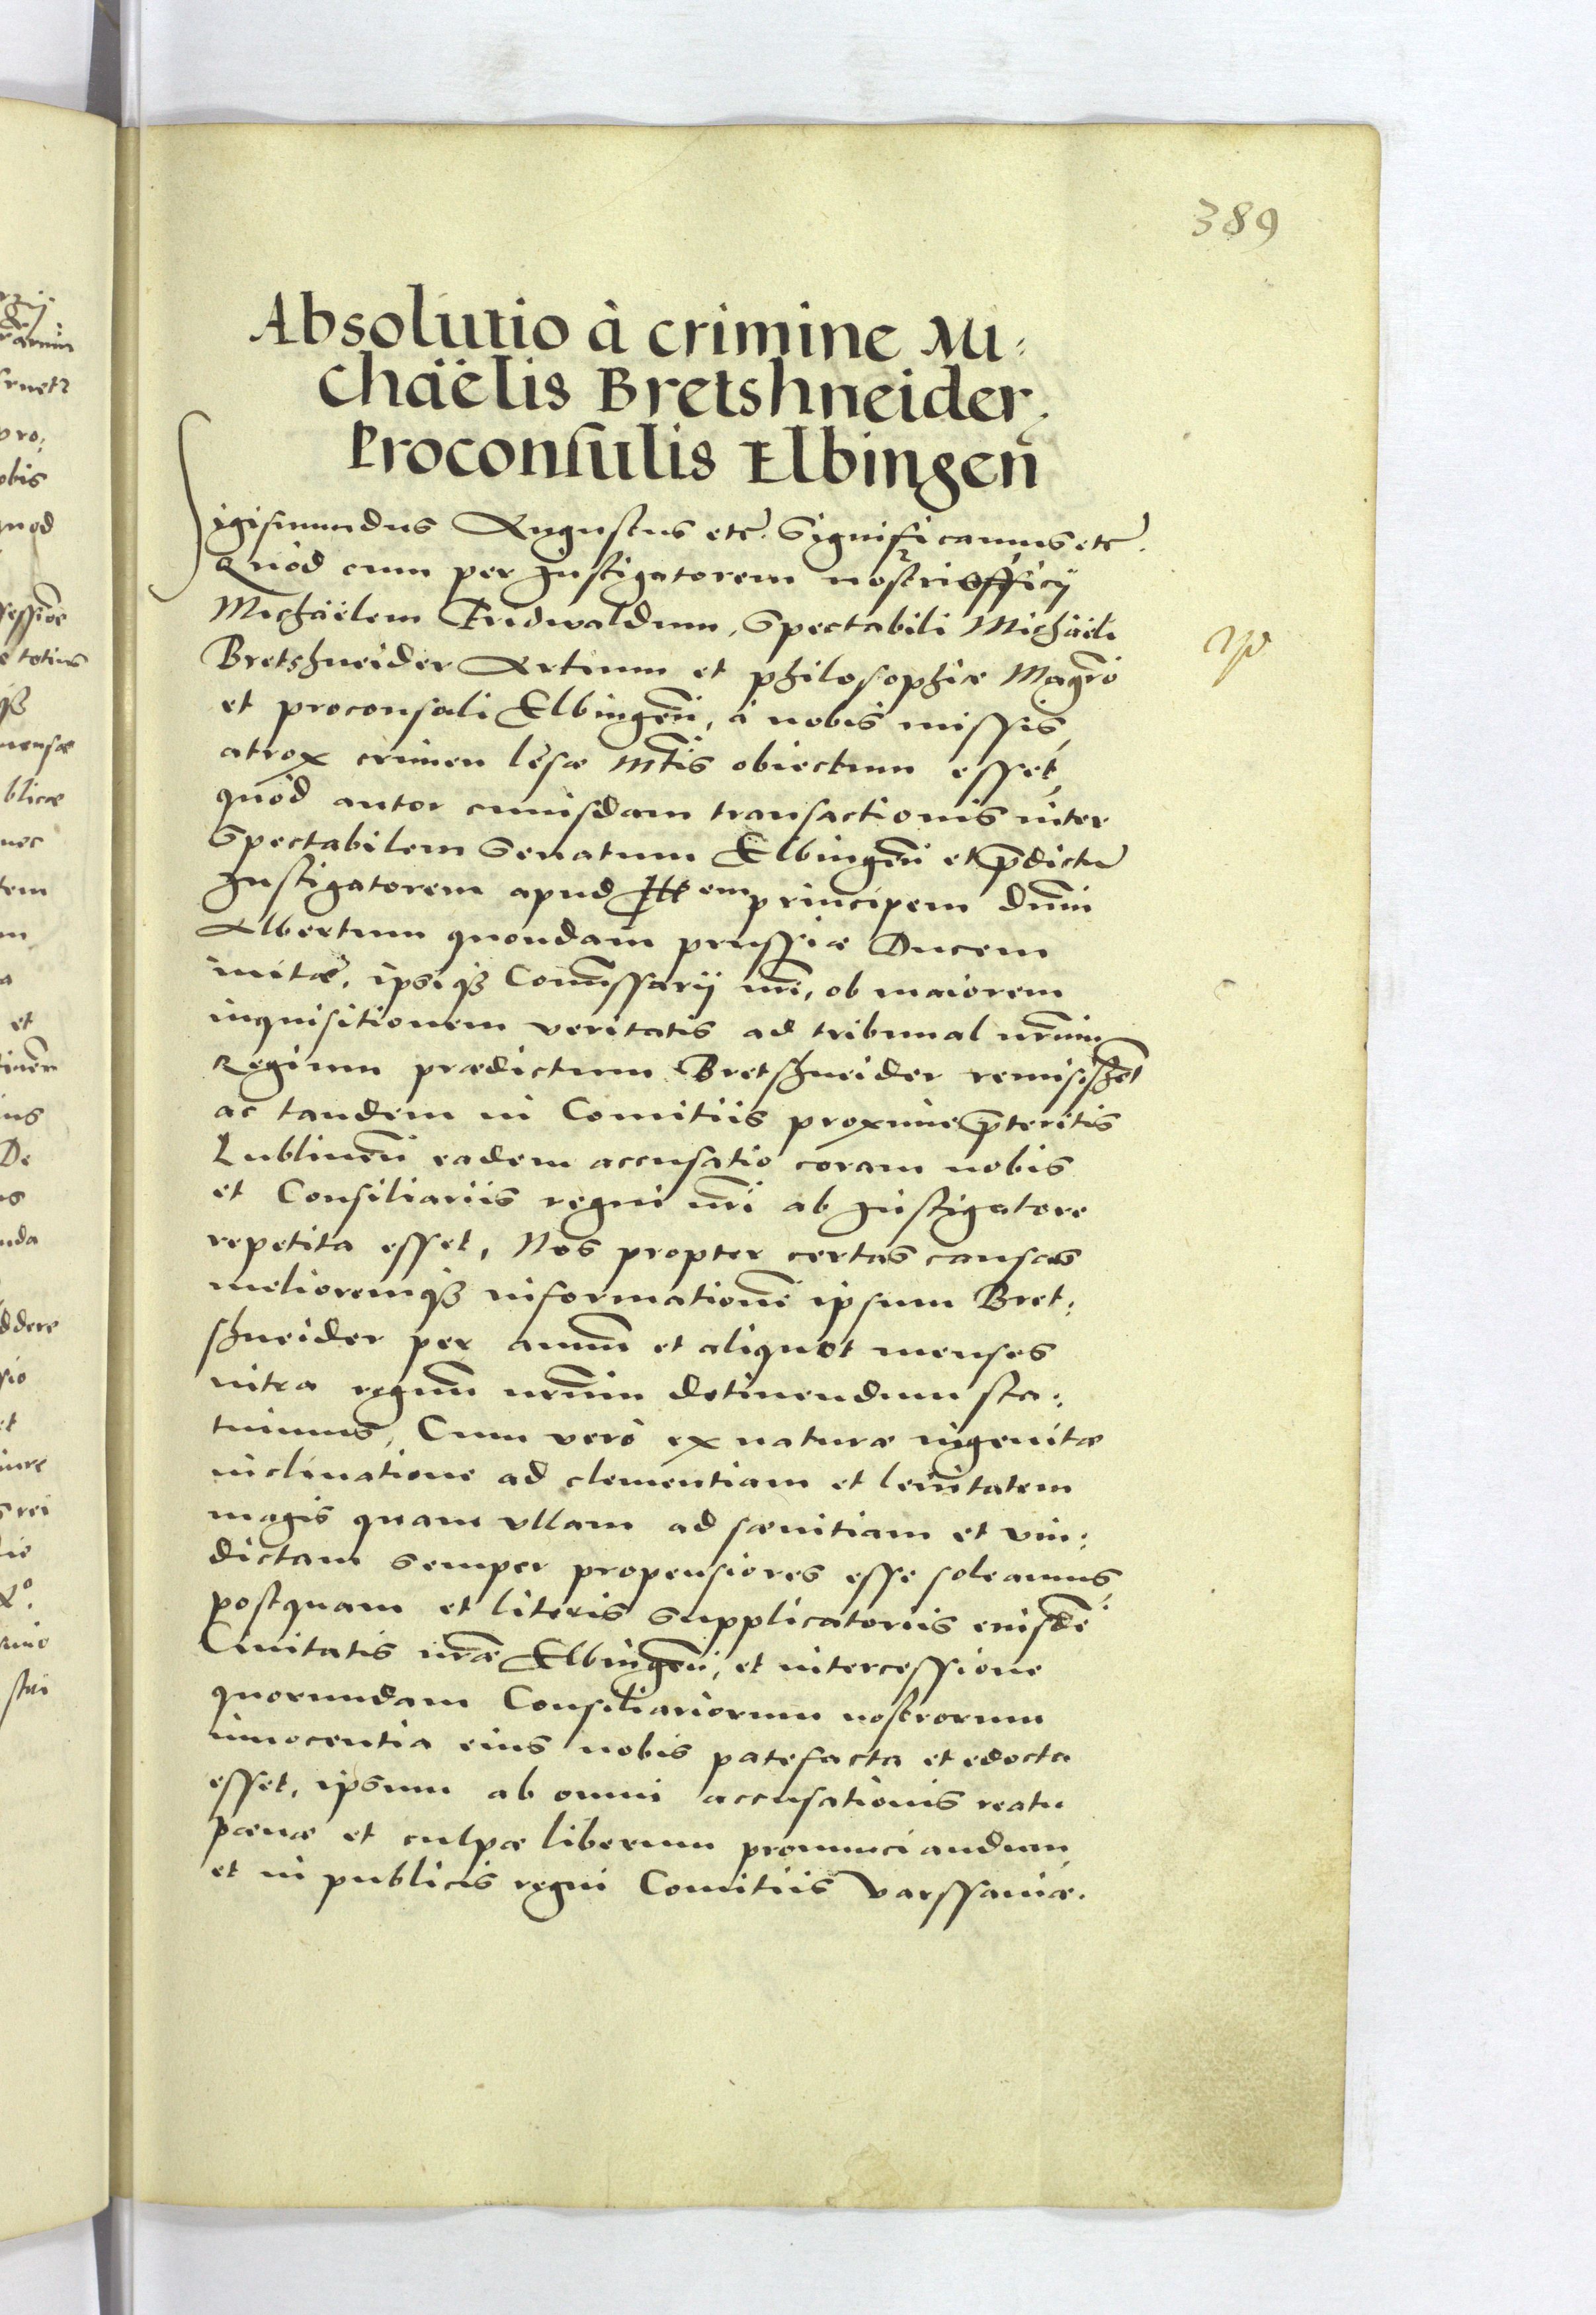 389
Absolutio à crimine Mi:
chäelis Bretshneider,
Proconsulis Elbingen̄
Sigismundus Augustus etc. Significamus etc.
Quòd cum per Instigatorem nostri officÿ
Michäelem Fridwaldum, Spectabili Michäeli
Bretshneider Artium et philosophiæ Magr̄o
et proconsuli Elbingen̄, à nobis missis,
atrox crimen lesæ Mt̄is obiectum esset,
quòd autor cuiusdam transactionis inter
Spectabilem Senatum Elbingen̄ et p̄dictū
Instigatorem apud Ill em principem dn̄m
Albertum quondam prussiæ Ducem
initæ, ipsiqȝ Com̄issarÿ nr̄i, ob maiorem
inquisitionem veritatis ad tribunal nr̄um
Regium prædictum Bretshneider remisissēt
ac tandem in Comitiis proxime p̄teritis
Lublinen̄ eadem accusatio coram nobis
et Consiliariis regni nr̄i ab Instigatore
repetita esset, Nos propter certas causas
melioremqȝ informationē ipsum Bret:
shneider per annū et aliquot menses
intra regnū nr̄um detinendum sta:
tuimus, Cum verò ex naturæ ingenitæ
inclinatione ad clementiam et lenitatem
magis quam vllam ad sæuitiam et vin:
dictam semper propensiores esse soleamus,
postquam et literis supplicatoriis eiusdē
Ciuitatis nr̄æ Elbingen̄, et intercessione
quorundam Consiliariorum nostrorum
innocentia eius nobis patefacta et edocta
esset, ipsum ab omni accusationis reatu
pœnæ et culpæ liberum pronunciandum,
et in publicis regni Comitiis Varssauiæ.